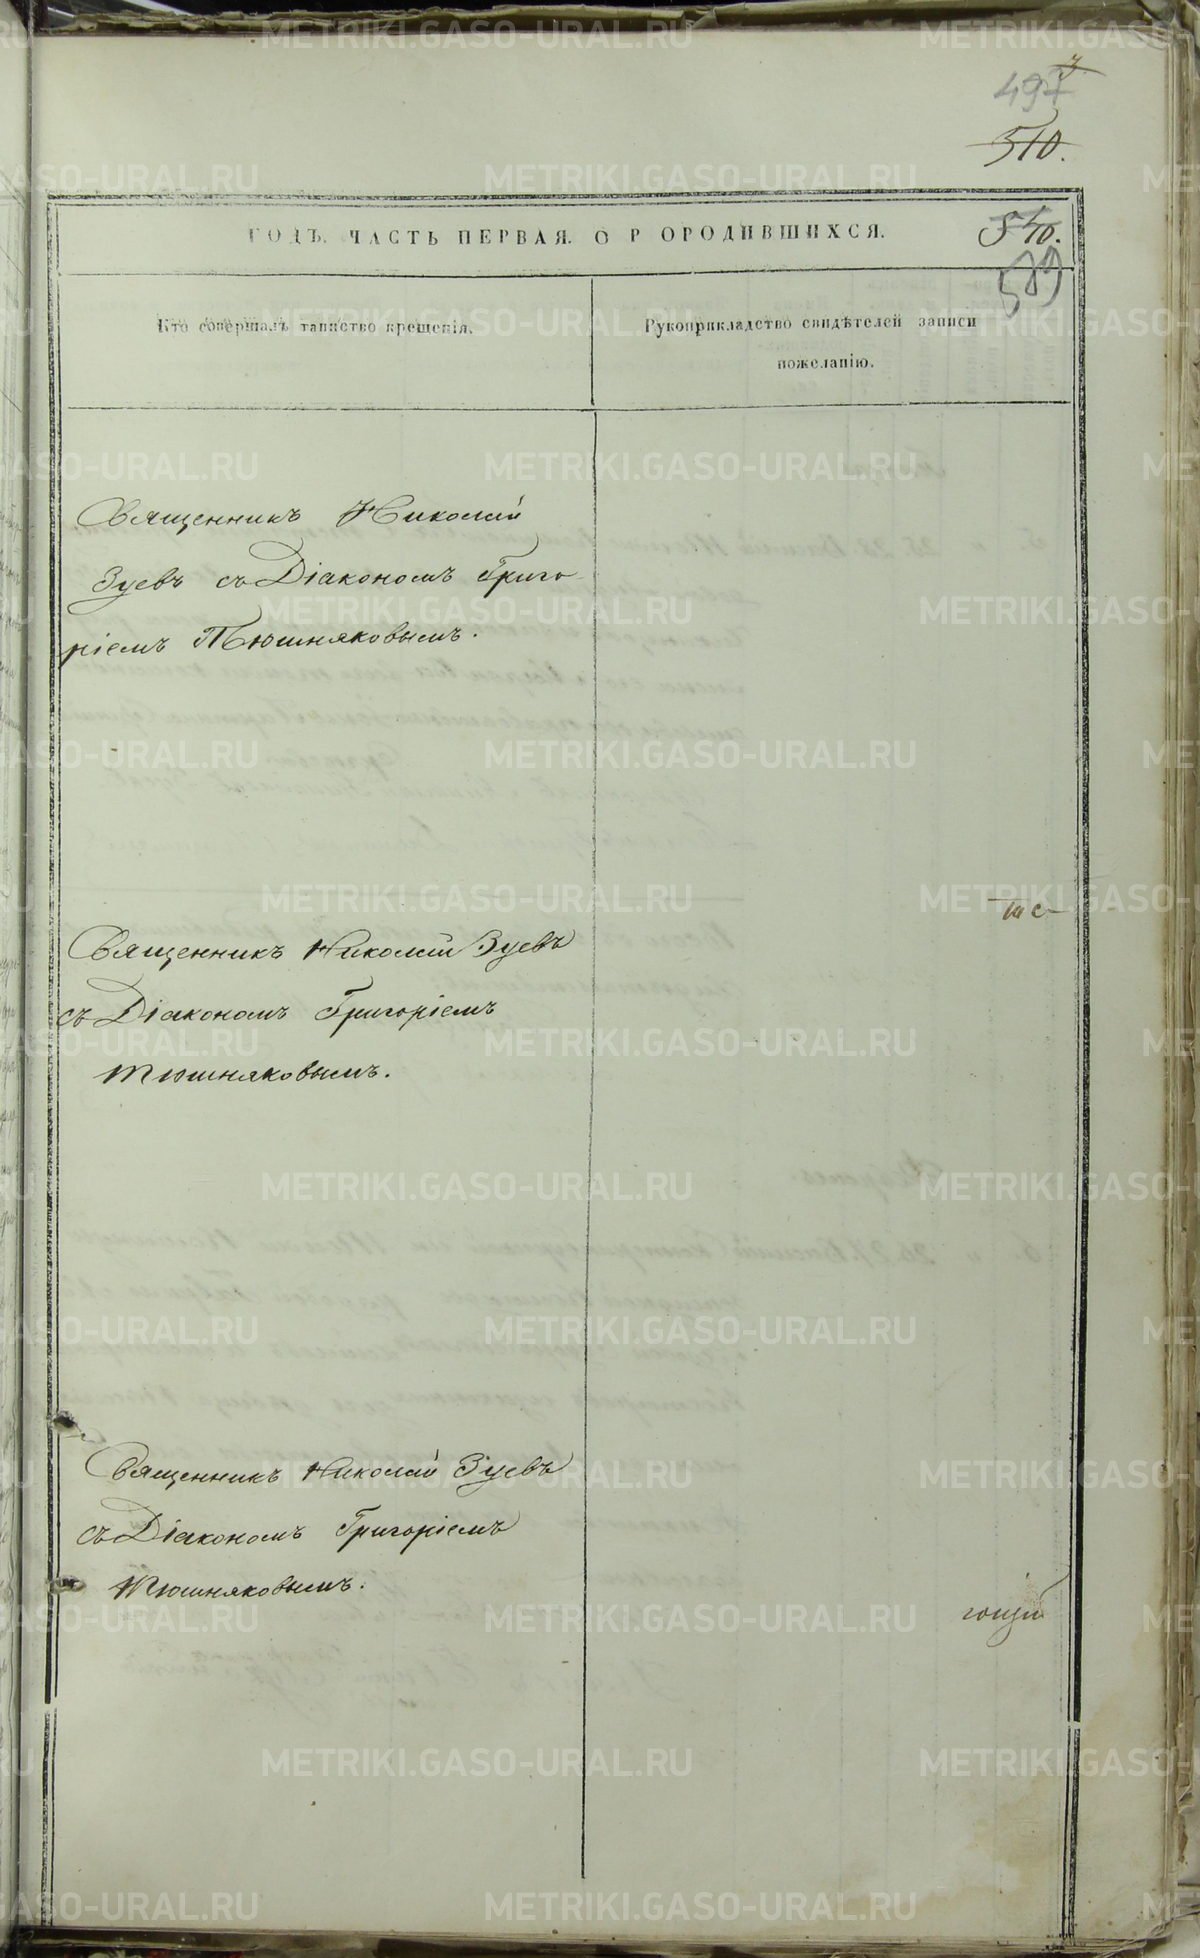 497
510.
ГОДЪ. ЧАСТЬ ПЕРВАЯ. О Р ОРОДИВШИХСЯ.
510.
589
Кто совершалъ таинство крещенія.
Рукоприкладство свидѣтелей записи
пожеланію.
Священникъ Николай
Зуевъ съ Діакономъ Григо
ріемъ Тюшняковымъ.
Священникъ Николай Зуевъ
съ Діакономъ Григоріемъ
Тюшняковымъ.
Священникъ Николай Зуевъ
съ Діакономъ Григоріемъ
Тюшняковымъ.
METRIKI.GASO-URAL.RU